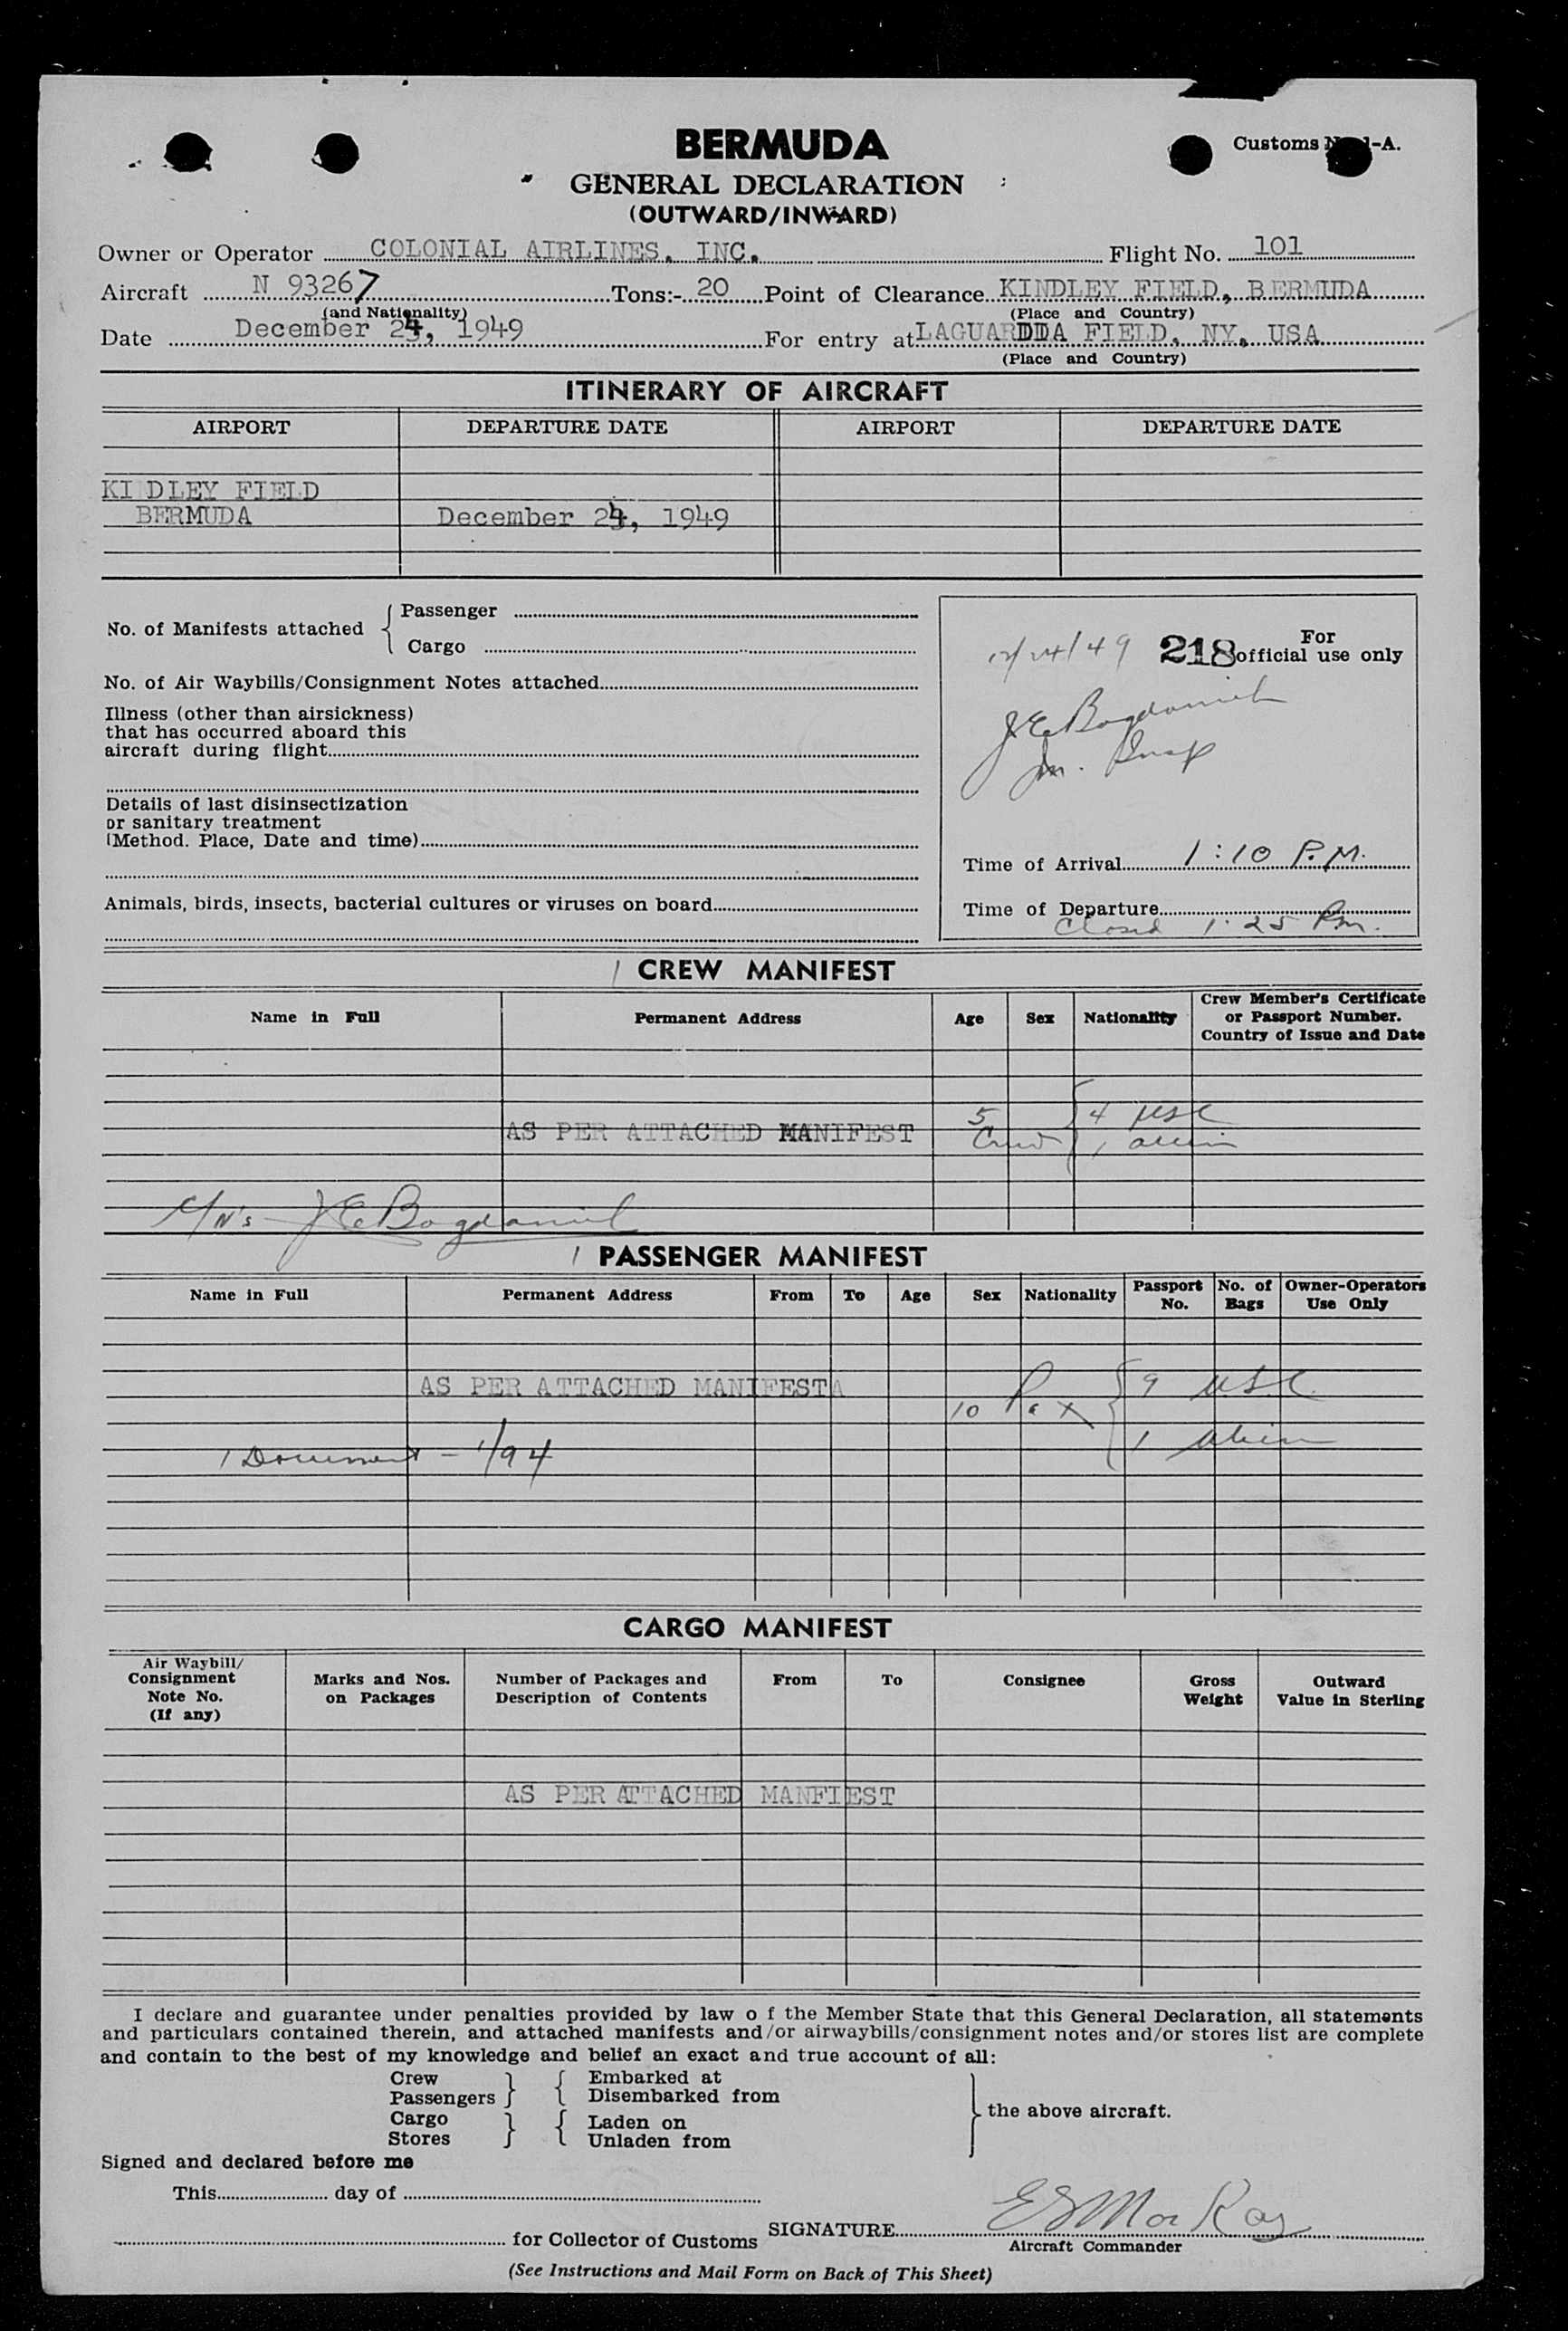 BERMUDA
Customs N 1-A.
GENERAL DECLARATION
(OUTWARD/INWARD)
Owner or Operator COLONIAL AIRLINES, INC. Flight No. 101
Aircraft N 93267 Tons:- 20 Point of Clearance KINDLEY FIELD, BERMUDA
(and Nationality) (Place and Country)
Date December 24, 1949 For entry at LAGUARDIA FIELD, NY, USA
(Place and Country)
ITINERARY OF AIRCRAFT
AIRPORT DEPARTURE DATE AIRPORT DEPARTURE DATE
KI DLEY FIELD
BERMUDA December 24, 1949
No. of Manifests attached { Passenger
Cargo
No. of Air Waybills/Consignment Notes attached
Illness (other than airsickness)
that has occurred aboard this
aircraft during flight
Details of last disinsectization
or sanitary treatment
(Method. Place, Date and time)
Animals, birds, insects, bacterial cultures or viruses on board
12/24/49 218 For
official use only
J E Bogdaniel
Im. Insp
Time of Arrival 1:10 P.M.
Time of Departure
Closed 1:25 Pm.
/ CREW MANIFEST
Name in Full Permanent Address Age Sex Nationality Crew Member's Certificate
or Passport Number.
Country of Issue and Date
5 { 4 USC
AS PER ATTACHED MANIFEST Crew 1 alien
J E Bogdaniel
/ PASSENGER MANIFEST
Name in Full Permanent Address From To Age Sex Nationality Passport No. No. of Bags Owner-Operators Use Only
AS PER ATTACHED MANIFESTA
10 Pax { 9 U.S.C.
1 Alien
1 Document - 1/94
CARGO MANIFEST
Air Waybill/
Consignment
Note No.
(If any)
Marks and Nos.
on Packages
Number of Packages and
Description of Contents
From To Consignee
Gross
Weight
Outward
Value in Sterling
AS PER ATTACHED MANFIEST
I declare and guarantee under penalties provided by law o f the Member State that this General Declaration, all statements
and particulars contained therein, and attached manifests and/or airwaybills/consignment notes and/or stores list are complete
and contain to the best of my knowledge and belief an exact and true account of all:
Crew } { Embarked at
Passengers Disembarked from
} the above aircraft.
Cargo } { Laden on
Stores Unladen from
Signed and declared before me
This day of
for Collector of Customs SIGNATURE E S MacKay
Aircraft Commander
(See Instructions and Mail Form on Back of This Sheet)